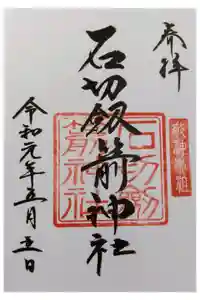 奉拝
石切劔箭神社
石切劔
箭神社
令和元年五月五日